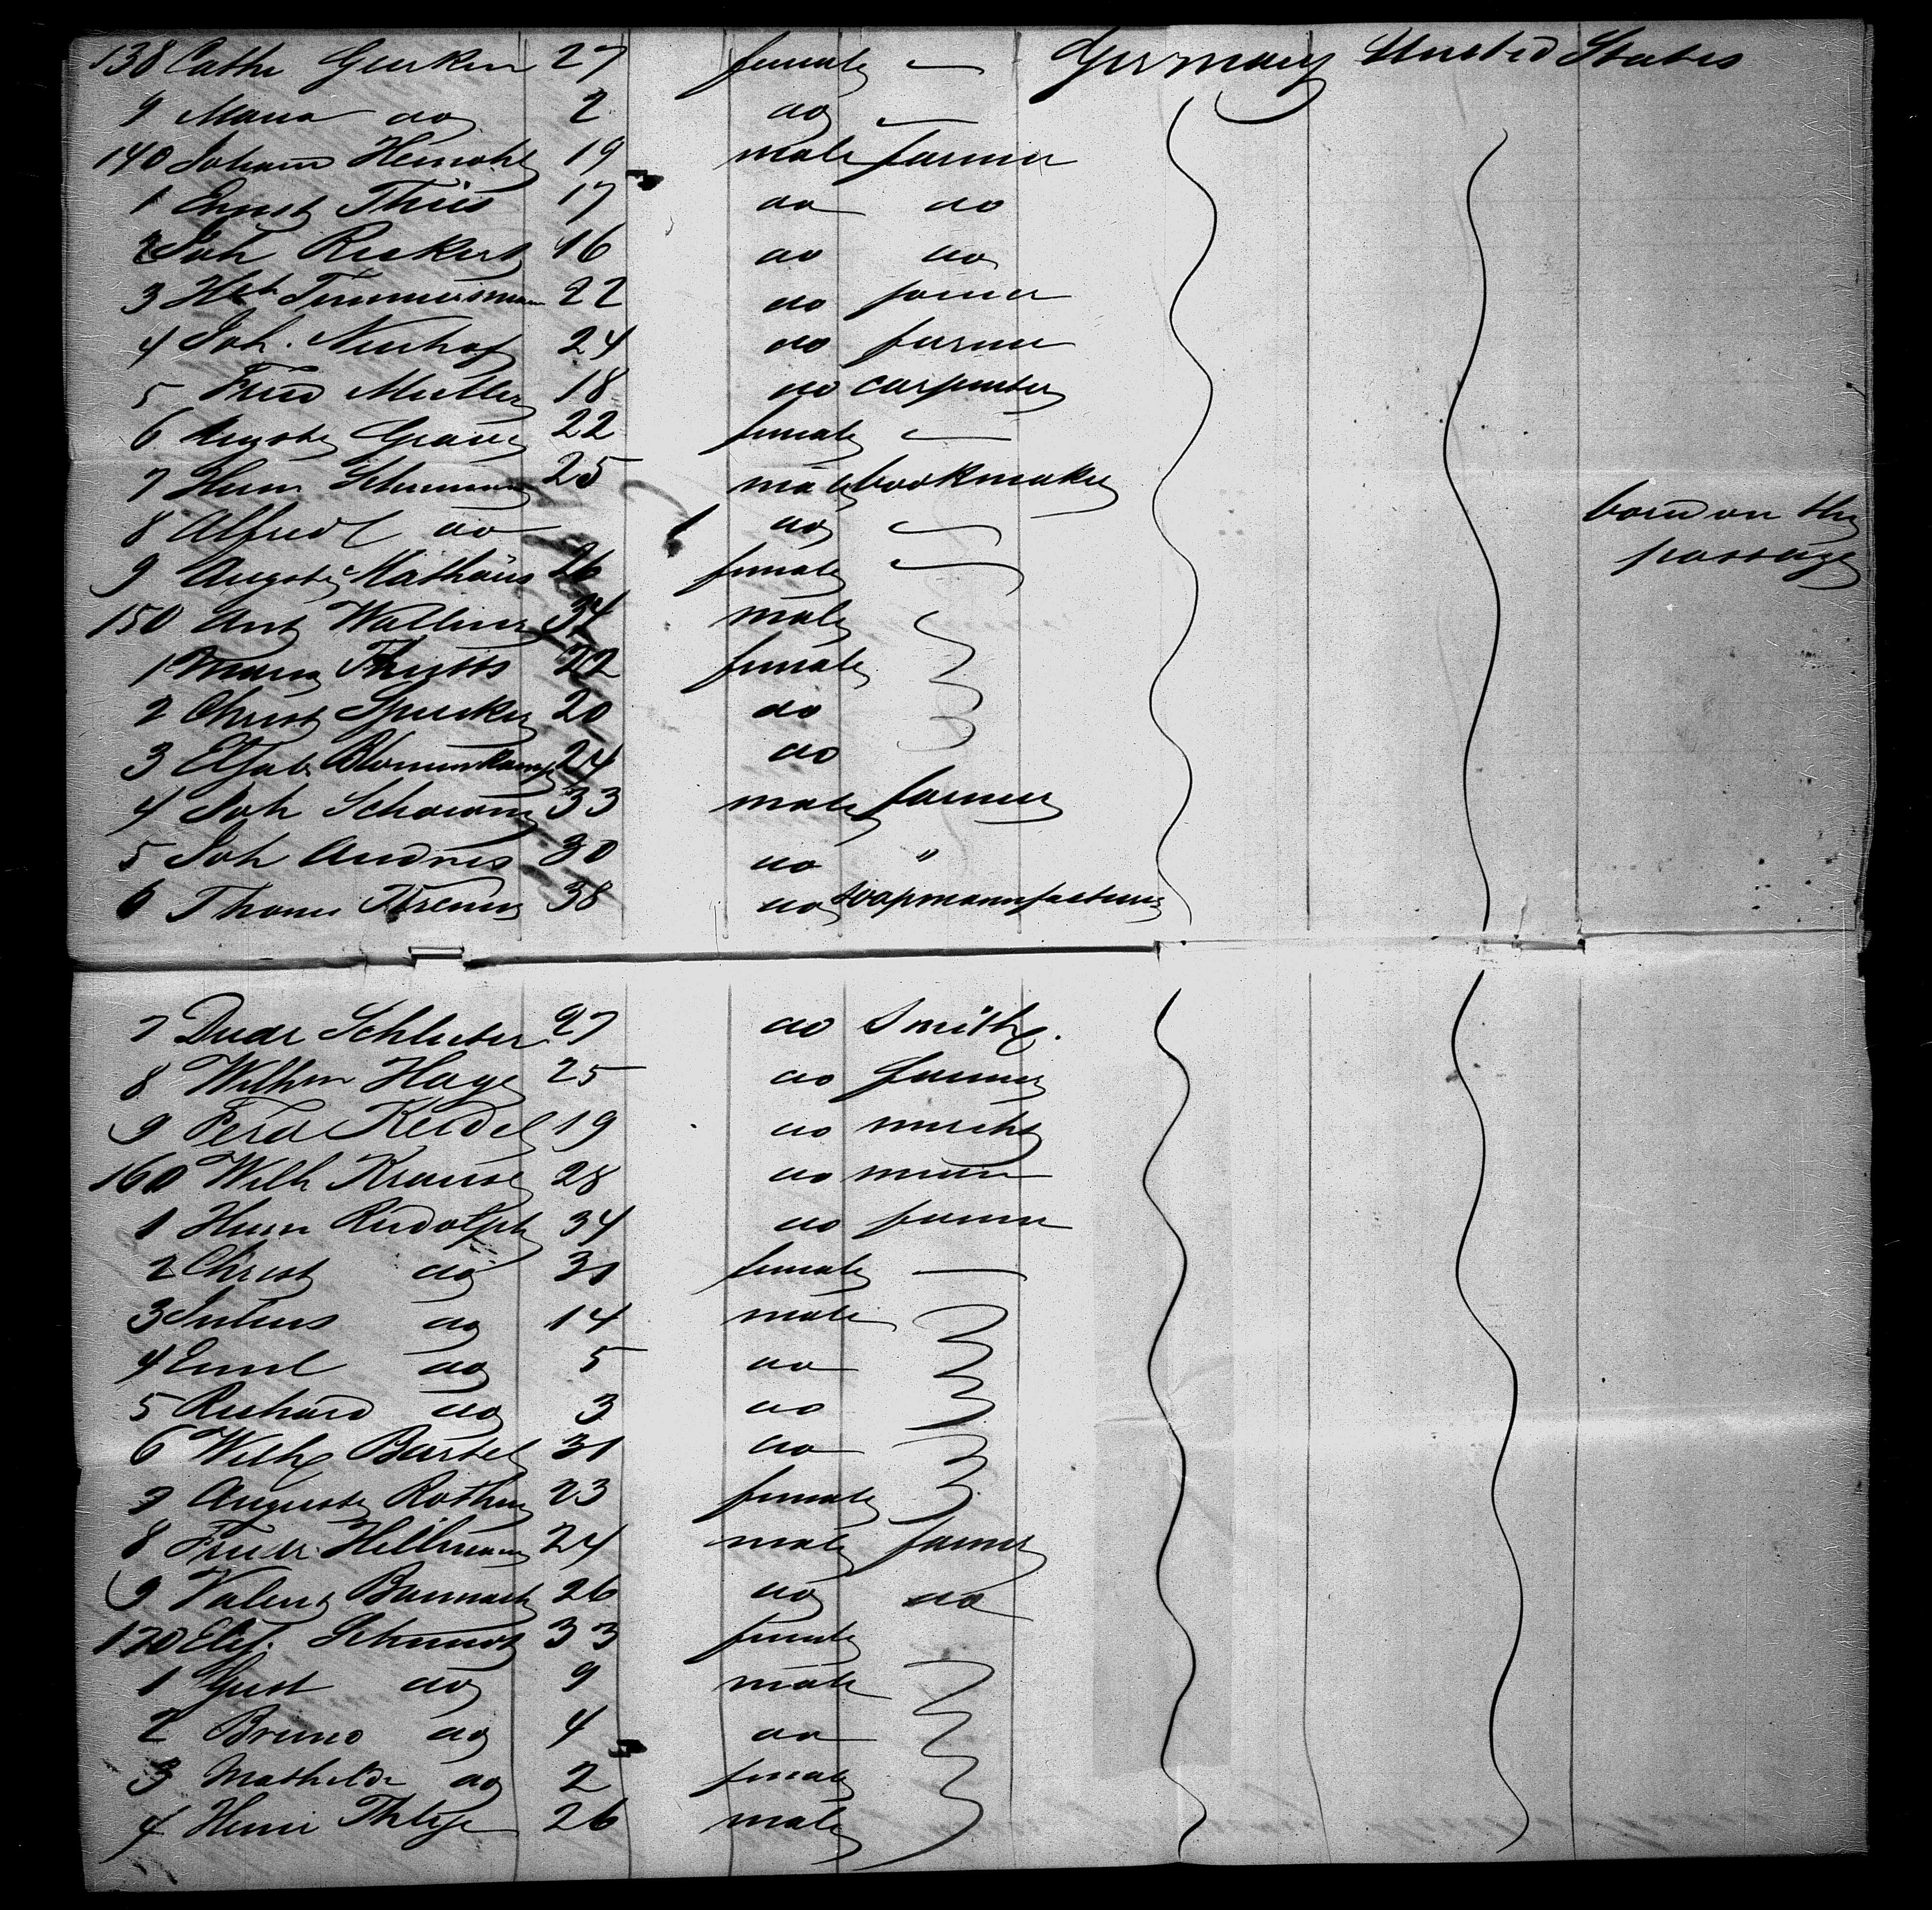 138 Cathr Gerken 27 female — Germany United States
9 Maria do 2 do —
140 Johann Heinrich 19 male farmer
1 Ernst Thies 17 do do
2 Joh Reckert 16 do do
3 Timmermann 22 do
4 Joh. Neuhof 24 do farmer
5 Fried Muller 18 do carpenter
6 22 female —
7 Herm Schumann 25 male bookmaker
8 Alfred do do — born on the
9 Auguste Mathäus 26 female — passage
150 Ant 34 male
1 Maria 22 female
2 Christ 20 do
3 Elisab Blomenkamp 24 do
4 Joh 33 male farmer
5 Joh Andres 30 do "
6 38 do soapmanufacturer
7 Schluter 27 do Smith.
8 Wilhm Hage 25 do farmer
9 Ferd Keidel 19 do
160 Wilh Krause 28 do
1 Herm Rudolph 34 do farmer
2 Christ do female —
3 Julius do 14 male
4 Emil do 5 do
5 Richard do 3 do
6 Wilh Bartel 31 do
7 Auguste 23 female
8 Hillmann 24 male farmer
9 26 do do
170 Elis. Schmidt 33 female
1 Gust do 9 male
2 Bruno do 4 do
3 Mathilde do 2 female
4 26 male